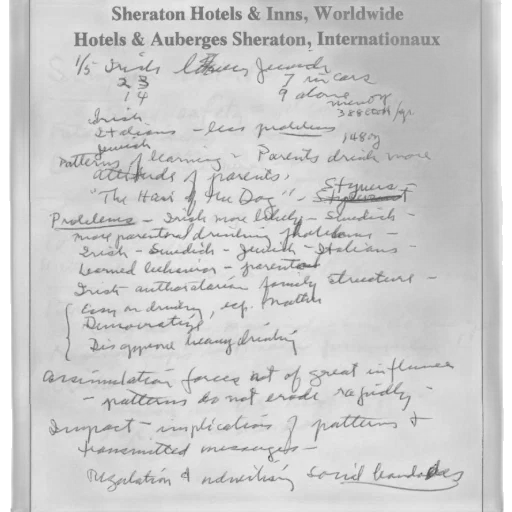 Sheraton Hotels & Inns, Worldwide
Hotels & Auberges Sheraton, Internationaux
1/5 Irish Jewish
2 3 7 in cars
1 4 9 alone
Irish
Italians - less problems
Jewish
Patterns of learning - Parents drink more
attitude of parents,
"The Hair of the Dog" - Styners
Problems - Irish more likely - Swedish -
more parental drinking problems -
Irish - Swedish - Jewish - Italians -
Learned behavior - parental
Irish authoritarian family structure -
Easy on drinking, esp. mother
Democratic
Disapprove heavy drinking
Assimilation forces not of great influence
- patterns do not erode rapidly -
Impact - implication of patterns &
transmitted messages -
Regulation & advertising